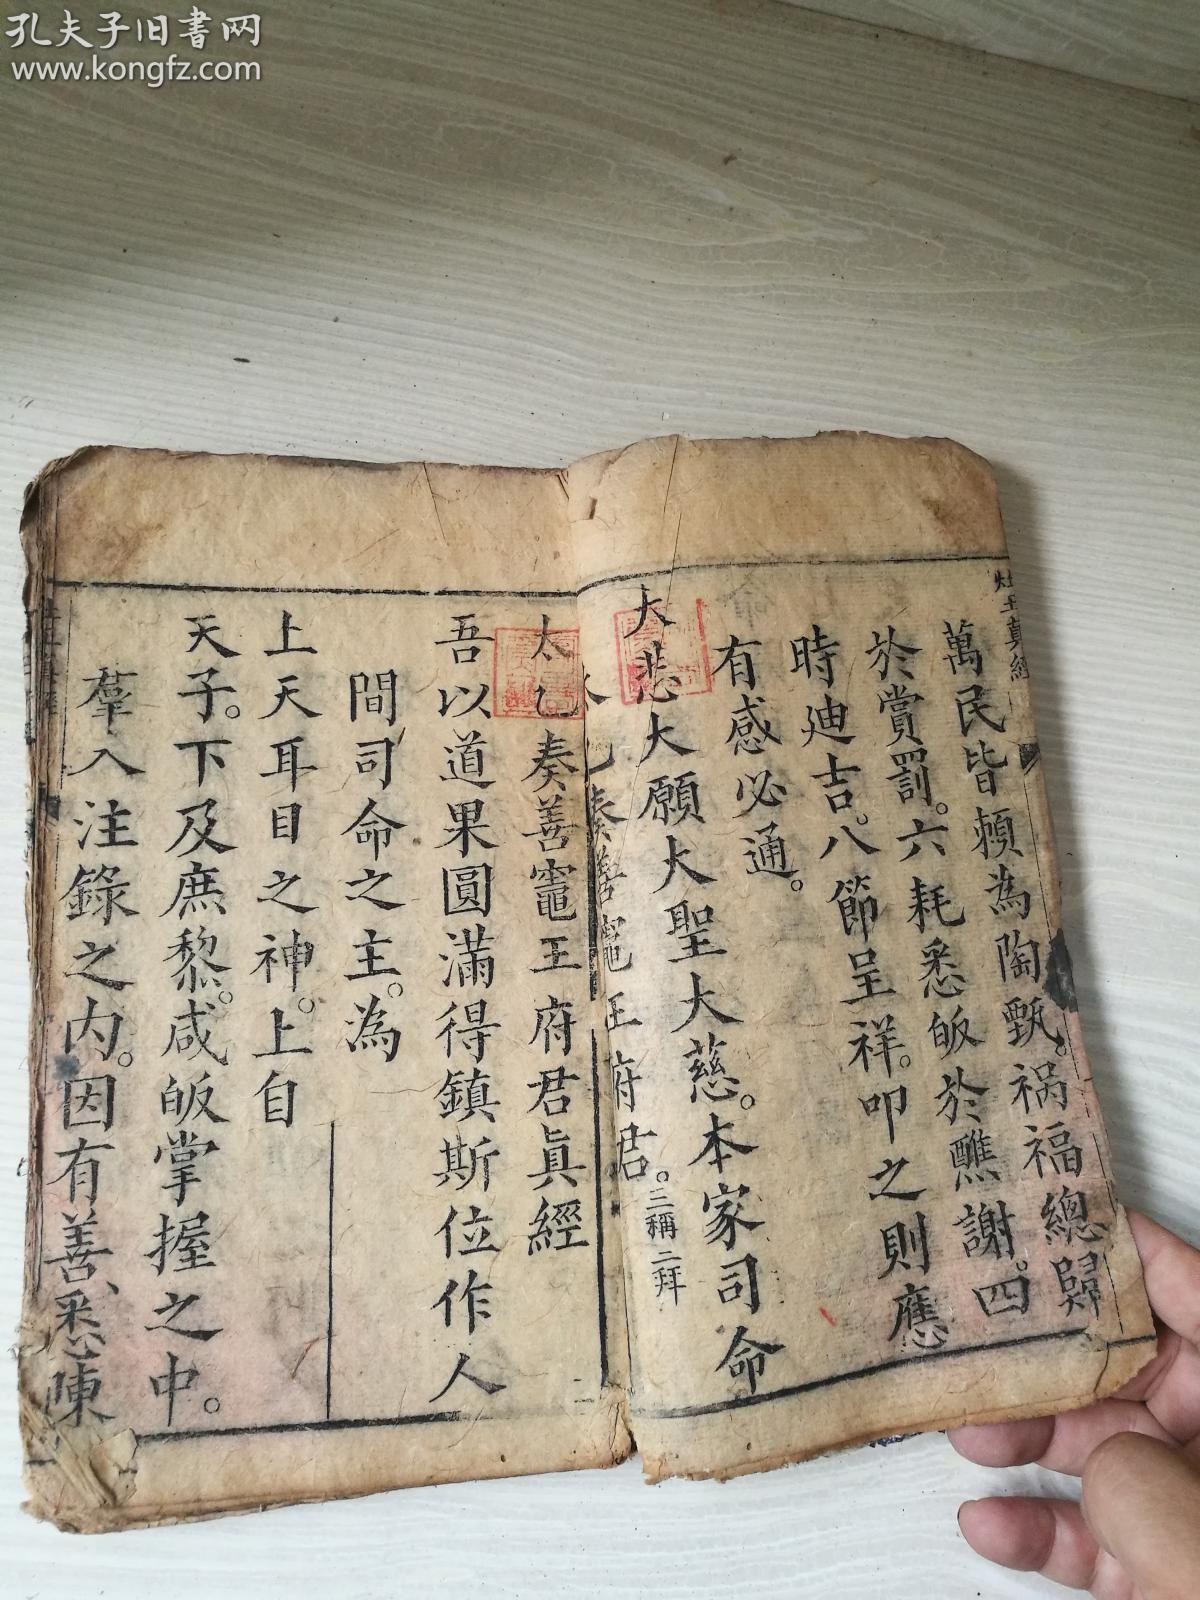 孔夫子旧書网
www.kongfz.com
灶王真經
萬民皆賴為陶甄。禍福總歸
於賞罰。六耗悉皈於醮謝。四
時迪吉。八節呈祥。叩之則應
有感必通。
大悲大願大聖大慈。本家司命
太乙奏善竈王府君。三稱三拜
太乙奏善竈王府君真經
吾以道果圓滿得鎮斯位作人
間司命之主。為
上天耳目之神。上自
天子。下及庶黎。咸皈掌握之中。
羣入注錄之内。因有善、悉陳